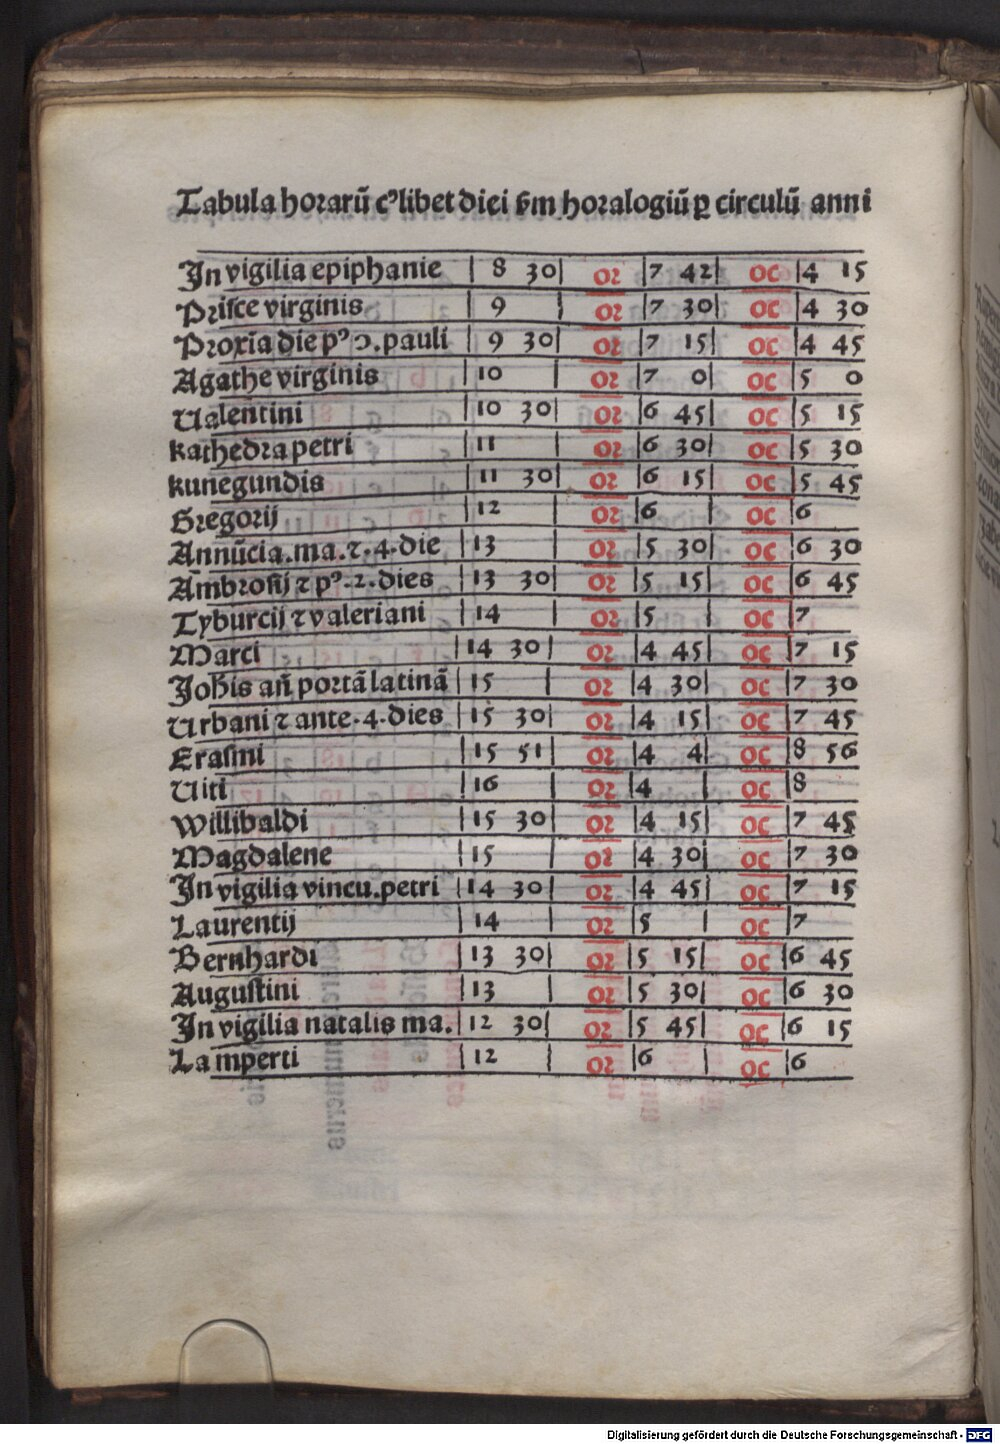 Tabula horarū cꝰlibet diei ẜm horalogiū ꝑ circulū anni
In vigilia epiphanie 8 30 or 7 42 oc 4 15
Priſce virginis 9 or 7 30 oc 4 30
Proxīa die pꝰ ɔ. pauli 9 30 or 7 15 oc 4 45
Agathe virginis 10 or 7 0 oc 5 0
Valentini 10 30 or 6 45 oc 5 15
kathedra petri 11 or 6 30 oc 5 30
kunegundis 11 30 or 6 15 oc 5 45
Gregorij 12 or 6 oc 6
Annūcia.ma.⁊.4.die 13 or 5 30 oc 6 30
Ambroſij ⁊ pꝰ.2.dies 13 30 or 5 15 oc 6 45
Tyburcij ⁊ valeriani 14 or 5 oc 7
Marci 14 30 or 4 45 oc 7 15
Johis an̄ portā latinā 15 or 4 30 oc 7 30
Urbani ⁊ ante.4.dies 15 30 or 4 15 oc 7 45
Eraſmi 15 51 or 4 4 oc 8 56
Viti 16 or 4 oc 8
Willibaldi 15 30 or 4 15 oc 7 45
Magdalene 15 or 4 30 oc 7 30
In vigilia vincu.petri 14 30 or 4 45 oc 7 15
Laurentij 14 or 5 oc 7
Bernhardi 13 30 or 5 15 oc 6 45
Auguſtini 13 or 5 30 oc 6 30
In vigilia natalis ma. 12 30 or 5 45 oc 6 15
Lamperti 12 or 6 oc 6
Digitalisierung gefördert durch die Deutsche Forschungsgemeinschaft - DFG